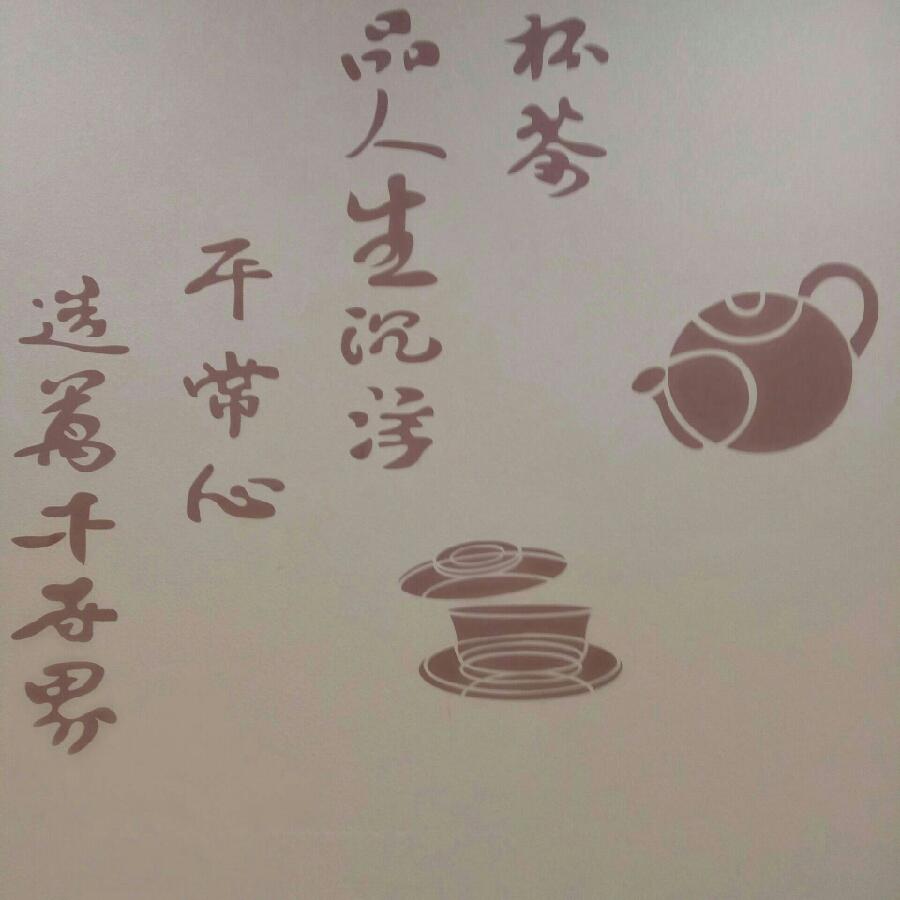 杯茶
品人生沉浮
平常心
造萬千世界